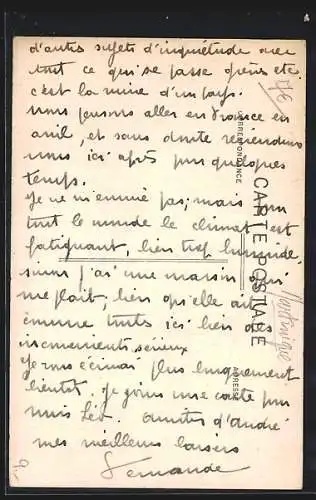 d'autres sujets d'inquiétude avec
tout ce qui se passe grèves etc.
c'est la ruine d'un pays.
nous pensons aller en France en
avril, et sans doute reviendrons
nous ici après quelques
temps.
Je ne m'ennuie pas, mais
tout le monde le climat est
fatiguant, bien trop humide,
sinon j'ai une maison qui
me plait, bien qu'elle ait
comme toutes ici bien des
inconvénients sérieux
Je vous écrirai plus longuement
bientôt. Je joins une carte pour
mais Léo. Amitiés d'André
mes meilleurs baisers
Fernande
CARTE POSTALE
CORRESPONDANCE
ADRESSE
Martinique